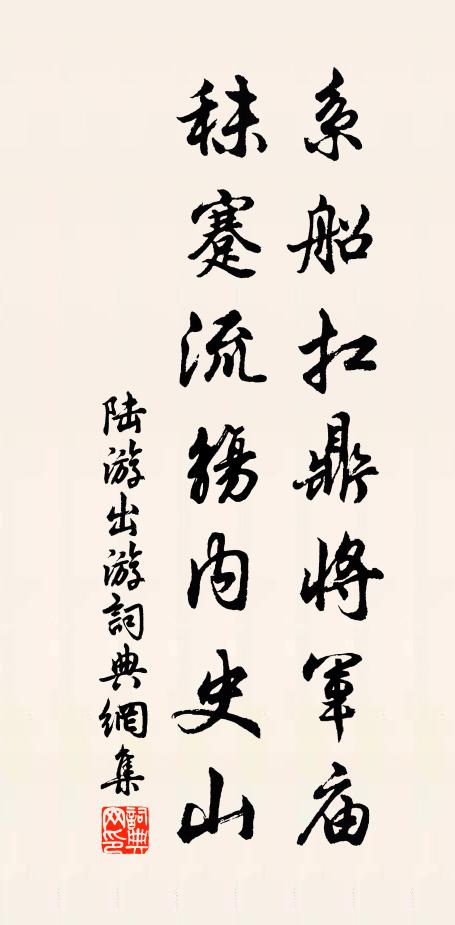 系船扛鼎將軍庙
秣蹇流觴内史山
陆游出游詞典網集
詞典
网印